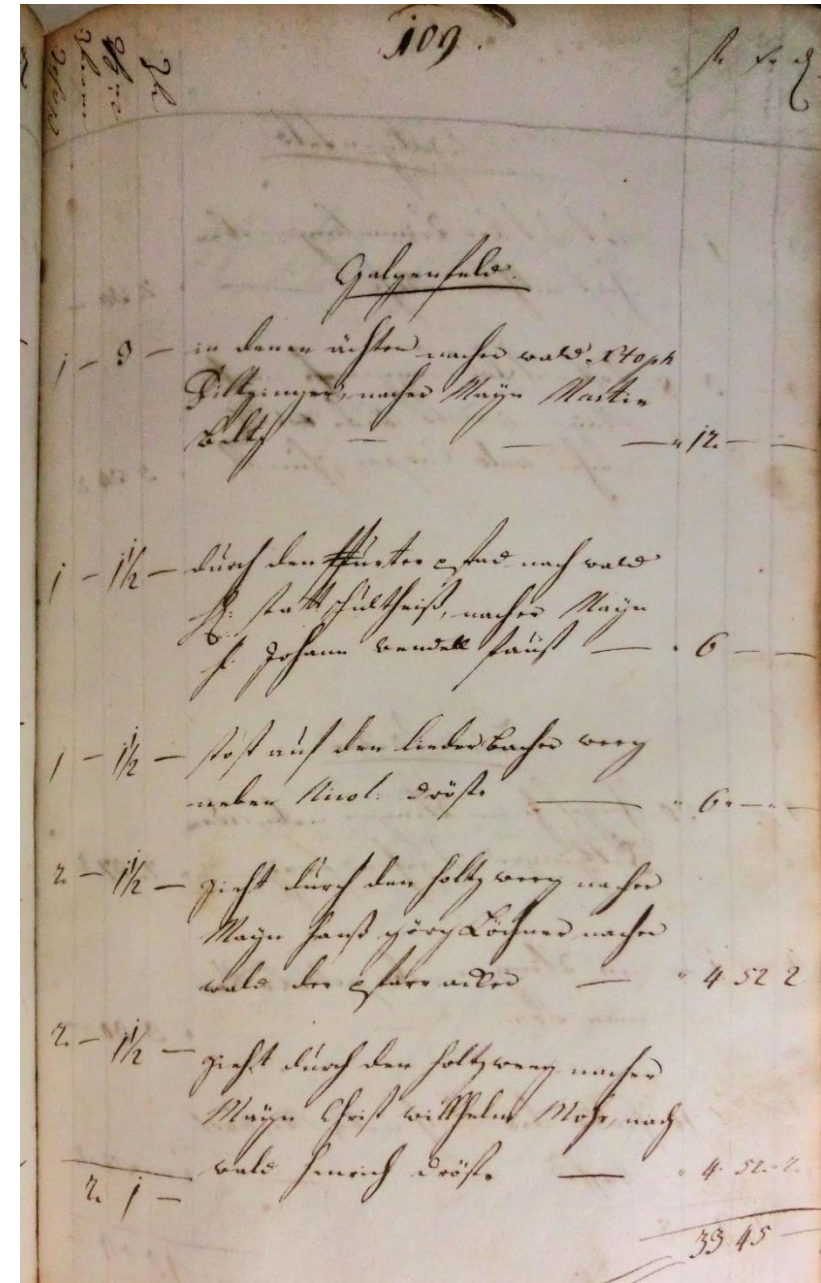 109.
fl xr ₰
Galgenfeld.
1 – 3 – in denen ächten nacher wald Xtoph
nacher Mayn Martin
Beltz — — — 12 — —
1 – 1½ – durch den pfad nach wald
H: statt schultheiß, nacher Mayn
H: Johann Wendell Faust — 6 — —
1 – 1½ – stöst auf den liederbacher weeg
neben Nicol: Dröste — 6 — —
2 – 1½ – zieht durch den holtzweeg nacher
Mayn Hanß Görg Löchner nacher
wald der pfarr acker — 4 52 2
2 – 1½ – zieht durch den holtzweeg nacher
Mayn Christ Willhelm Mohr, nach
wald Henrich Dröste — 4 52 2
2. 1 –
33 45 –